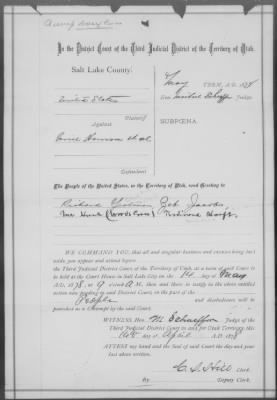 In the District Court of the Third Judicial District of the Territory of Utah.
Salt Lake County.
May TERM, A.D. 1878
Hon. Michael Schaeffer Judge.
United States
Plaintiff
Against
SUBPOENA.
et al.
Defendant
The People of the United States, in the Territory of Utah, send Greeting to
Richard
Zeb Jacobs,
(Woods Cross)
WE COMMAND YOU, that all and singular business and excuses being laid
aside, you appear and attend before the
Third Judicial District Court of the Territory of Utah, at a term of said Court to
be held at the Court House in Salt Lake City on the 14 day of May
A.D. 1878, at 9 o'clock A M., then and there to testify in the above entitled
action now pending in said District Court on the part of the
People and disobedience will be
punished as a Contempt by the said Court.
WITNESS, Hon. M Schaeffer Judge of the
Third Judicial District Court in and for Utah Territory, this
day of April A.D. 1878
ATTEST my hand and the Seal of said Court the day and year
last above written.
C. S. Hill Clerk.
By Deputy Clerk.